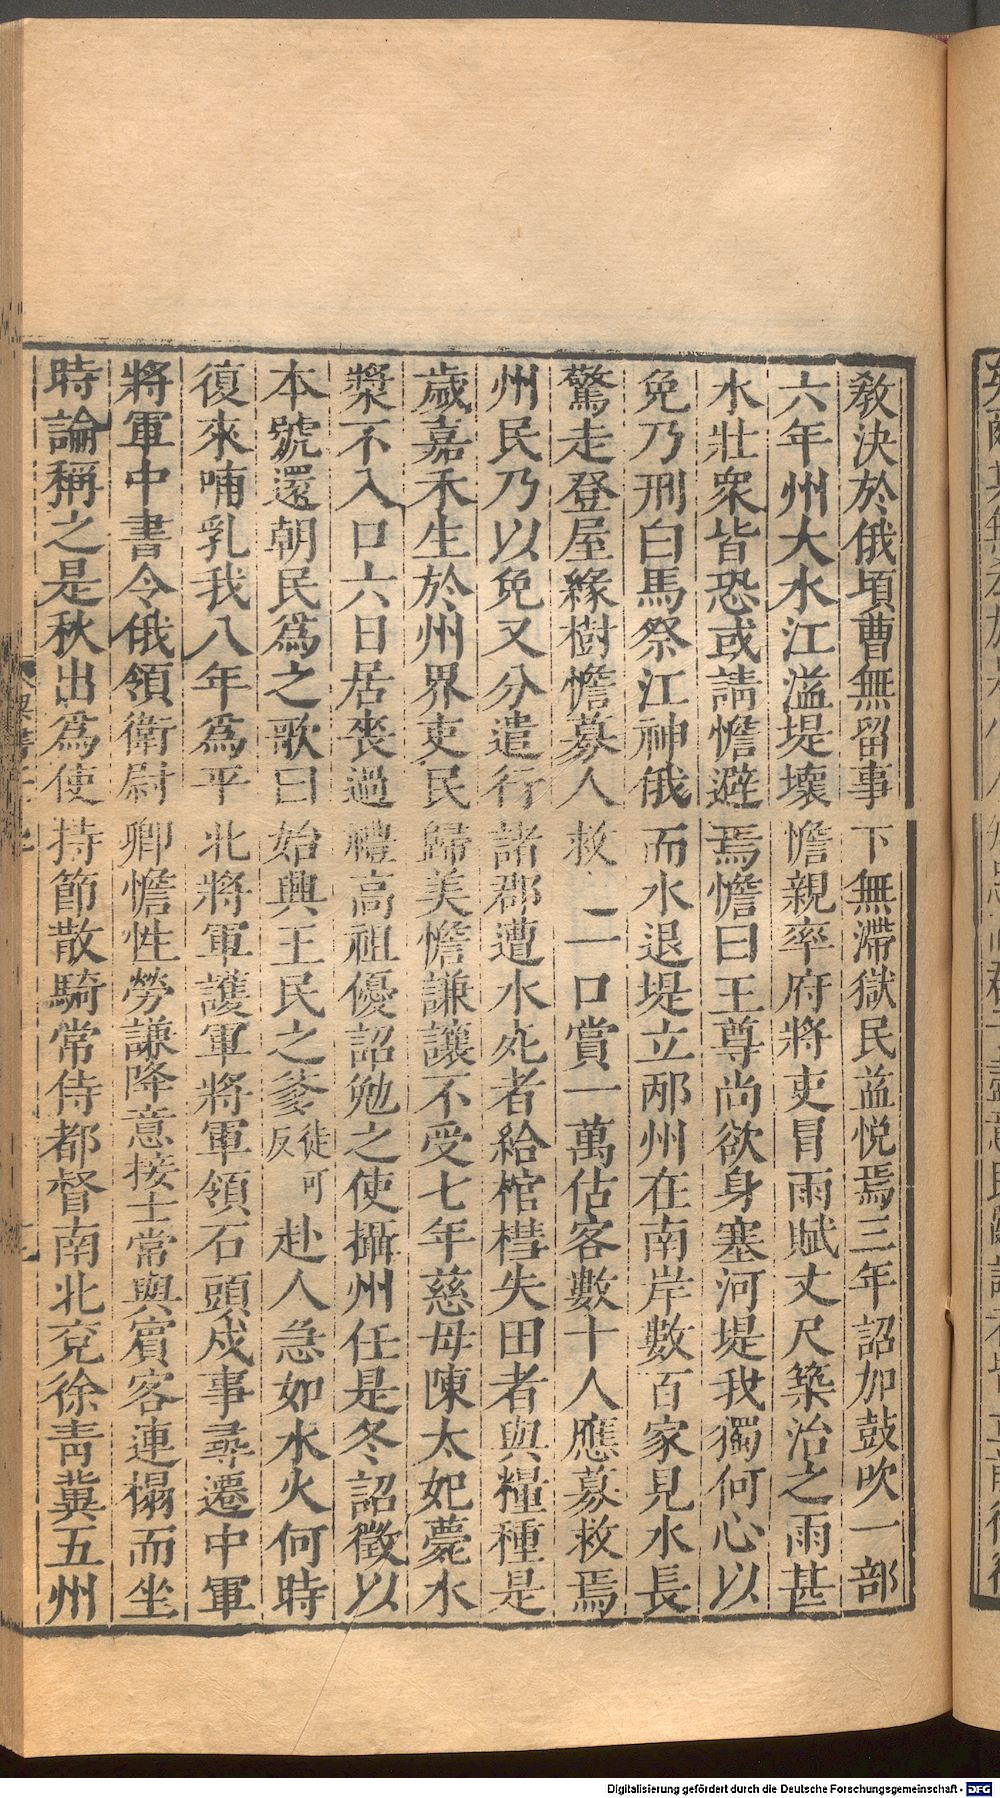 敎決於俄頃曹無留事下無滯獄民益悅焉三年詔加鼓吹一部
六年州大水江溢堤壞憺親率府將吏冒雨賦丈尺築治之雨甚
水壯衆皆恐或請憺避焉憺曰王尊尚欲身塞河堤我獨何心以
免乃刑白馬祭江神俄而水退堤立邴州在南岸數百家見水長
驚走登屋緣樹憺募人救一口賞一萬估客數十人應募救焉
州民乃以免又分遣行諸郡遭水死者給棺槥失田者與糧種是
歲嘉禾生於州界吏民歸美憺謙讓不受七年慈母陳太妃薨水
漿不入口六日居喪過禮高祖優詔勉之使攝州任是冬詔徵以
本號還朝民爲之歌曰始興王民之爹徒可反赴人急如水火何時
復來哺乳我八年爲平北將軍護軍將軍領石頭戍事尋遷中軍
將軍中書令俄領衛尉卿憺性勞謙降意接士常與賓客連榻而坐
時論稱之是秋出爲使持節散騎常侍都督南北兗徐靑冀五州
Digitalisierung gefördert durch die Deutsche Forschungsgemeinschaft - DFG